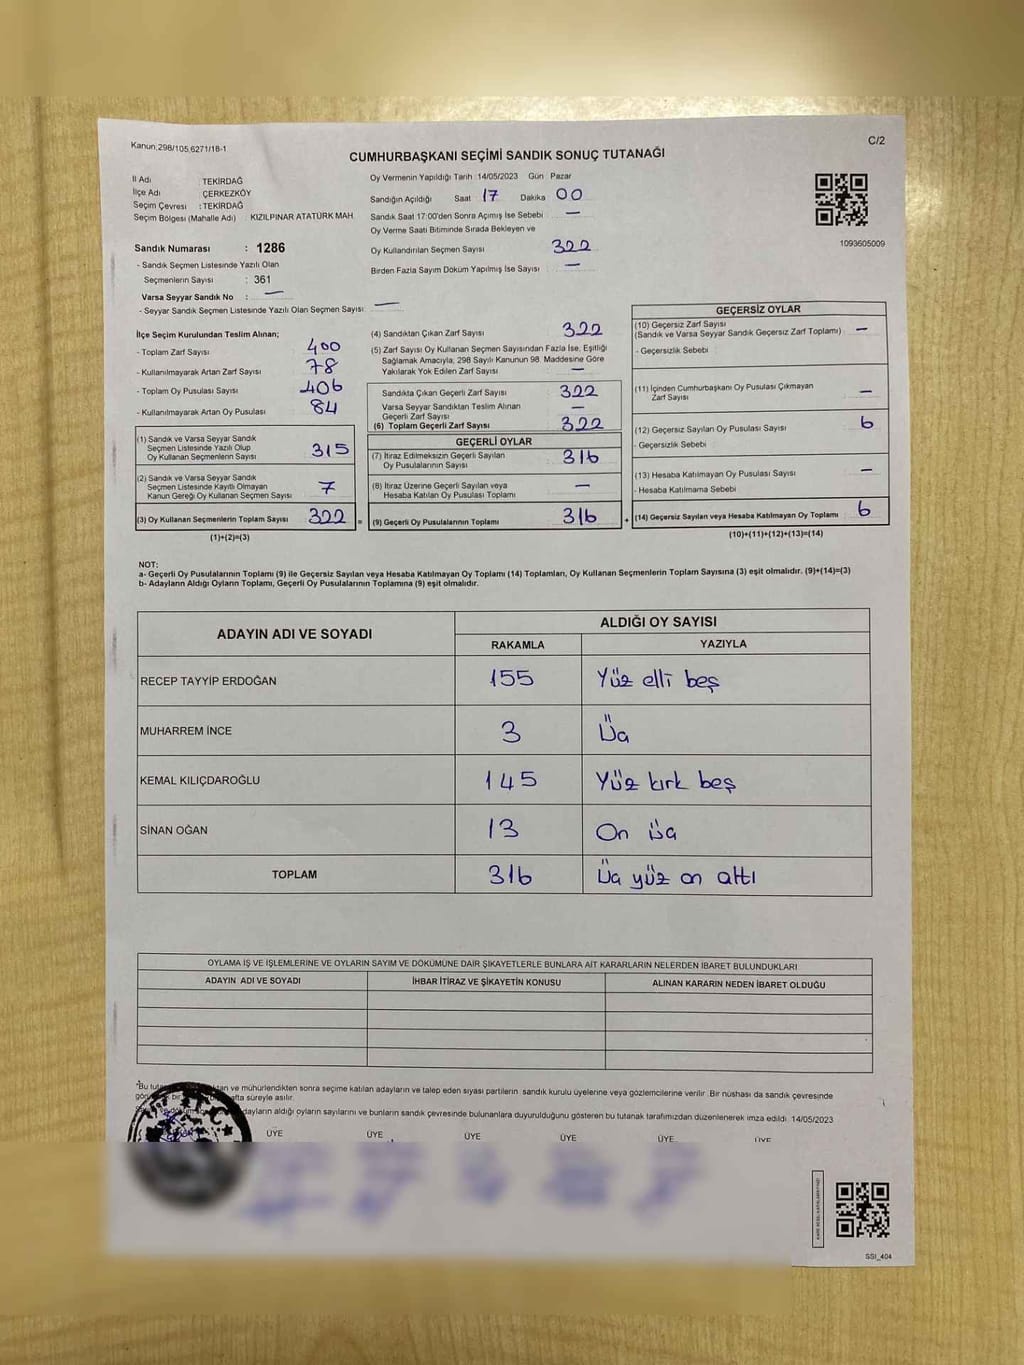 Kanun,298/105,6271/18-1
C/2
CUMHURBAŞKANI SEÇİMİ SANDIK SONUÇ TUTANAĞI
İl Adı : TEKİRDAĞ
İlçe Adı : ÇERKEZKÖY
Seçim Çevresi : TEKİRDAĞ
Seçim Bölgesi (Mahalle Adı) : KIZILPINAR ATATÜRK MAH.
Sandık Numarası : 1286
- Sandık Seçmen Listesinde Yazılı Olan
Seçmenlerin Sayısı : 361
Varsa Seyyar Sandık No : —
- Seyyar Sandık Seçmen Listesinde Yazılı Olan Seçmen Sayısı: —
Oy Vermenin Yapıldığı Tarih :14/05/2023 Gün : Pazar
Sandığın Açıldığı Saat 17 Dakika 00
Sandık Saat 17:00'den Sonra Açımış İse Sebebi —
Oy Verme Saati Bitiminde Sırada Bekleyen ve
Oy Kullandırılan Seçmen Sayısı 322
Birden Fazla Sayım Döküm Yapılmış İse Sayısı —
1093605009
İlçe Seçim Kurulundan Teslim Alınan;
- Toplam Zarf Sayısı 400
- Kullanılmayarak Artan Zarf Sayısı 78
- Toplam Oy Pusulası Sayısı 406
- Kullanılmayarak Artan Oy Pusulası 84
(1) Sandık ve Varsa Seyyar Sandık
Seçmen Listesinde Yazılı Olup
Oy Kullanan Seçmenlerin Sayısı 315
(2) Sandık ve Varsa Seyyar Sandık
Seçmen Listesinde Kayıtlı Olmayan
Kanun Gereği Oy Kullanan Seçmen Sayısı 7
(3) Oy Kullanan Seçmenlerin Toplam Sayısı 322 =
(1)+(2)=(3)
(4) Sandıktan Çıkan Zarf Sayısı 322
(5) Zarf Sayısı Oy Kullanan Seçmen Sayısından Fazla İse, Eşitliği
Sağlamak Amacıyla, 298 Sayılı Kanunun 98. Maddesine Göre
Yakılarak Yok Edilen Zarf Sayısı —
Sandıkta Çıkan Geçerli Zarf Sayısı 322
Varsa Seyyar Sandıktan Teslim Alınan
Geçerli Zarf Sayısı —
(6) Toplam Geçerli Zarf Sayısı 322
GEÇERLİ OYLAR
(7) İtiraz Edilmeksizin Geçerli Sayılan
Oy Pusulalarının Sayısı 316
(8) İtiraz Üzerine Geçerli Sayılan veya
Hesaba Katılan Oy Pusulası Toplamı —
(9) Geçerli Oy Pusulalarının Toplamı 316 +
GEÇERSİZ OYLAR
(10) Geçersiz Zarf Sayısı
(Sandık ve Varsa Seyyar Sandık Geçersiz Zarf Toplamı) —
- Geçersizlik Sebebi
(11) İçinden Cumhurbaşkanı Oy Pusulası Çıkmayan
Zarf Sayısı —
(12) Geçersiz Sayılan Oy Pusulası Sayısı 6
- Geçersizlik Sebebi
(13) Hesaba Katılmayan Oy Pusulası Sayısı —
- Hesaba Katılmama Sebebi
(14) Geçersiz Sayılan veya Hesaba Katılmayan Oy Toplamı 6
(10)+(11)+(12)+(13)=(14)
NOT:
a- Geçerli Oy Pusulalarının Toplamı (9) ile Geçersiz Sayılan veya Hesaba Katılmayan Oy Toplamı (14) Toplamları, Oy Kullanan Seçmenlerin Toplam Sayısına (3) eşit olmalıdır. (9)+(14)=(3)
b- Adayların Aldığı Oyların Toplamı, Geçerli Oy Pusulalarının Toplamına (9) eşit olmalıdır.
ADAYIN ADI VE SOYADI
ALDIĞI OY SAYISI
RAKAMLA YAZIYLA
RECEP TAYYİP ERDOĞAN 155 Yüz elli beş
MUHARREM İNCE 3 Üç
KEMAL KILIÇDAROĞLU 145 Yüz kırk beş
SİNAN OĞAN 13 On üç
TOPLAM 316 Üç yüz on altı
OYLAMA İŞ VE İŞLEMLERİNE VE OYLARIN SAYIM VE DÖKÜMÜNE DAİR ŞİKAYETLERLE BUNLARA AİT KARARLARIN NELERDEN İBARET BULUNDUKLARI
ADAYIN ADI VE SOYADI İHBAR İTİRAZ VE ŞİKAYETİN KONUSU ALINAN KARARIN NEDEN İBARET OLDUĞU
*Bu ve mühürlendikten sonra seçime katılan adayların ve talep eden siyası partilerin sandık kurulu üyelerine veya gözlemcilerine verilir .Bir nüshası da sandık çevresinde
süreyle asılır.
adayların aldığı oyların sayılarını ve bunların sandık çevresinde bulunanlara duyurulduğunu gösteren bu tutanak tarafımızdan düzenlenerek imza edildi. 14/05/2023
ÜYE ÜYE ÜYE ÜYE ÜYE ÜYE
SSI_404